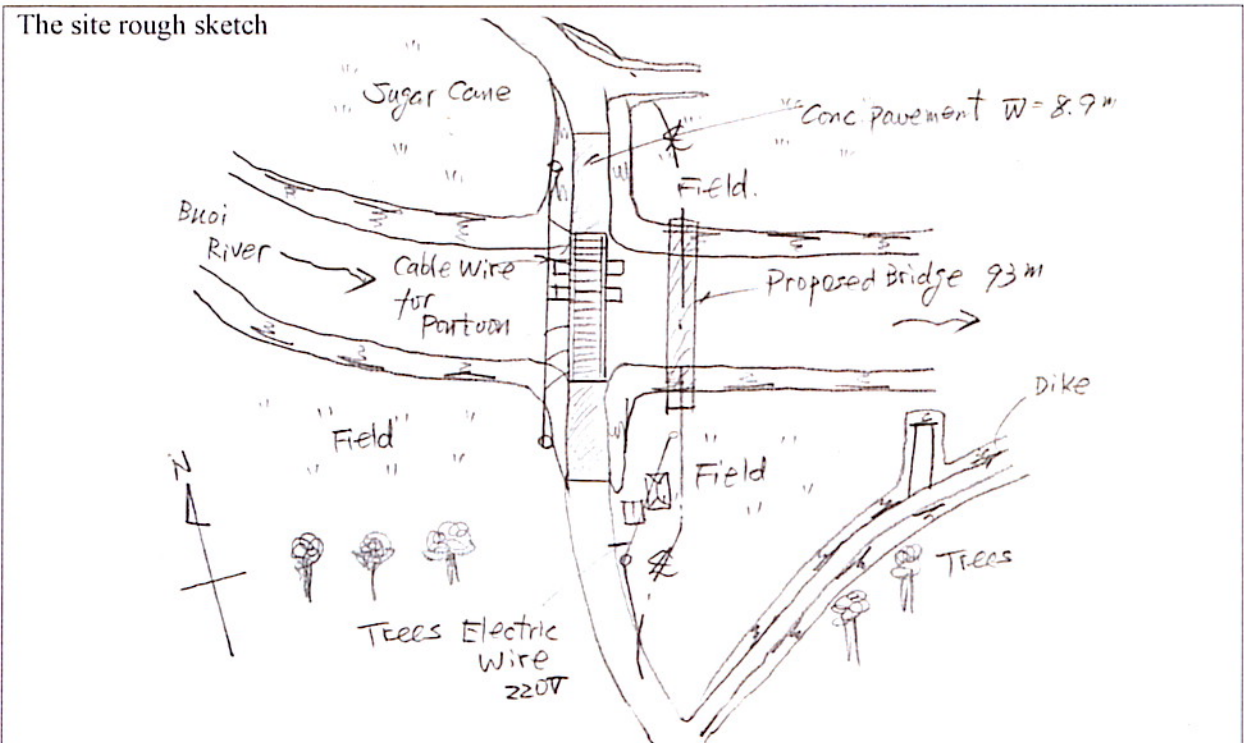 The site rough sketch
Sugar Cane
Conc. pavement W=8.9m
Field.
Buoi
River
Cable Wire
for
Pontoon
Proposed Bridge 93m
Dike
Field
Field
N
Trees
Trees Electric
Wire
220V
℄
℄